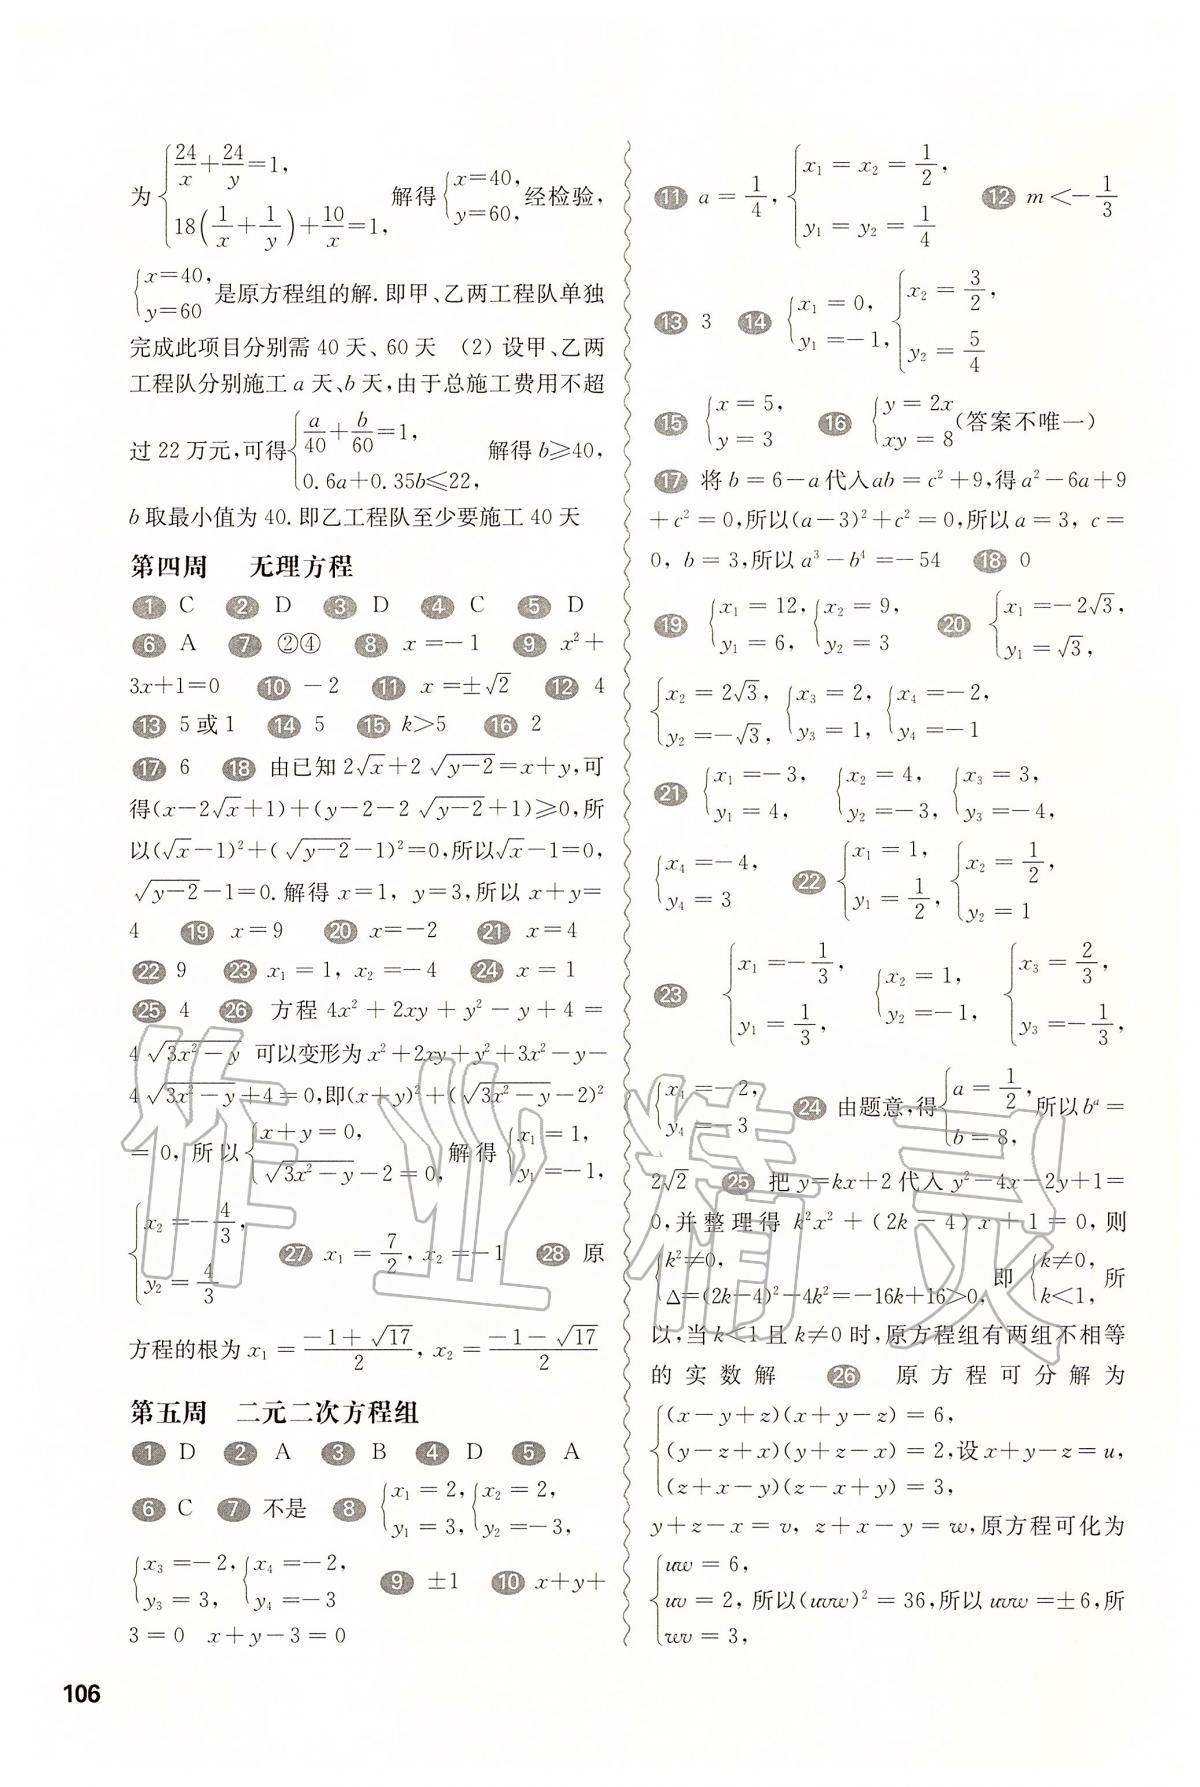 为{24/x+24/y=1, 18(1/x+1/y)+10/x=1, 解得{x=40, y=60, 经检验,
{x=40, y=60 是原方程组的解.即甲、乙两工程队单独
完成此项目分别需 40 天、60 天 (2) 设甲、乙两
工程队分别施工 a 天、b 天,由于总施工费用不超
过 22 万元,可得{a/40+b/60=1, 0.6a+0.35b≤22, 解得 b≥40,
b 取最小值为 40.即乙工程队至少要施工 40 天
第四周 无理方程
1 C 2 D 3 D 4 C 5 D
6 A 7 ②④ 8 x=-1 9 x²+
3x+1=0 10 -2 11 x=±√2 12 4
13 5或1 14 5 15 k>5 16 2
17 6 18 由已知 2√x+2√(y-2)=x+y,可
得(x-2√x+1)+(y-2-2√(y-2)+1)≥0,所
以(√x-1)²+(√(y-2)-1)²=0,所以√x-1=0,
√(y-2)-1=0.解得 x=1, y=3,所以 x+y=
4 19 x=9 20 x=-2 21 x=4
22 9 23 x₁=1, x₂=-4 24 x=1
25 4 26 方程 4x²+2xy+y²-y+4=
4√(3x²-y) 可以变形为 x²+2xy+y²+3x²-y-
4√(3x²-y)+4=0,即(x+y)²+(√(3x²-y)-2)²
=0, 所以{x+y=0, √(3x²-y)-2=0, 解得{x₁=1, y₁=-1,
{x₂=-4/3, y₂=4/3 27 x₁=7/2, x₂=-1 28 原
方程的根为 x₁=(-1+√17)/2, x₂=(-1-√17)/2
第五周 二元二次方程组
1 D 2 A 3 B 4 D 5 A
6 C 7 不是 8 {x₁=2, y₁=3, {x₂=2, y₂=-3,
{x₃=-2, y₃=3, {x₄=-2, y₄=-3 9 ±1 10 x+y+
3=0 x+y-3=0
11 a=1/4, {x₁=x₂=1/2, y₁=y₂=1/4 12 m<-1/3
13 3 14 {x₁=0, y₁=-1, {x₂=3/2, y₂=5/4
15 {x=5, y=3 16 {y=2x xy=8 (答案不唯一)
17 将 b=6-a 代入 ab=c²+9,得 a²-6a+9
+c²=0,所以(a-3)²+c²=0,所以 a=3, c=
0, b=3,所以 a³-b⁴=-54 18 0
19 {x₁=12, y₁=6, {x₂=9, y₂=3 20 {x₁=-2√3, y₁=√3,
{x₂=2√3, y₂=-√3, {x₃=2, y₃=1, {x₄=-2, y₄=-1
21 {x₁=-3, y₁=4, {x₂=4, y₂=-3, {x₃=3, y₃=-4,
{x₄=-4, y₄=3 22 {x₁=1, y₁=1/2, {x₂=1/2, y₂=1
23 {x₁=-1/3, y₁=1/3, {x₂=1, y₂=-1, {x₃=2/3, y₃=-1/3,
{x₄=-2, y₄=-3 24 由题意,得{a=1/2, b=8, 所以 bᵃ=
2√2 25 把 y=kx+2 代入 y²-4x-2y+1=
0,并整理得 k²x²+(2k-4)x+1=0,则
{k²≠0, Δ=(2k-4)²-4k²=-16k+16>0, 即{k≠0, k<1, 所
以,当 k<1 且 k≠0 时,原方程组有两组不相等
的实数解 26 原方程可分解为
{(x-y+z)(x+y-z)=6,
(y-z+x)(y+z-x)=2,设 x+y-z=u,
(z+x-y)(z-x+y)=3,
y+z-x=v, z+x-y=w,原方程可化为
{uw=6,
uv=2, 所以(uvw)²=36,所以 uvw=±6,所
wv=3,
106
作业精灵